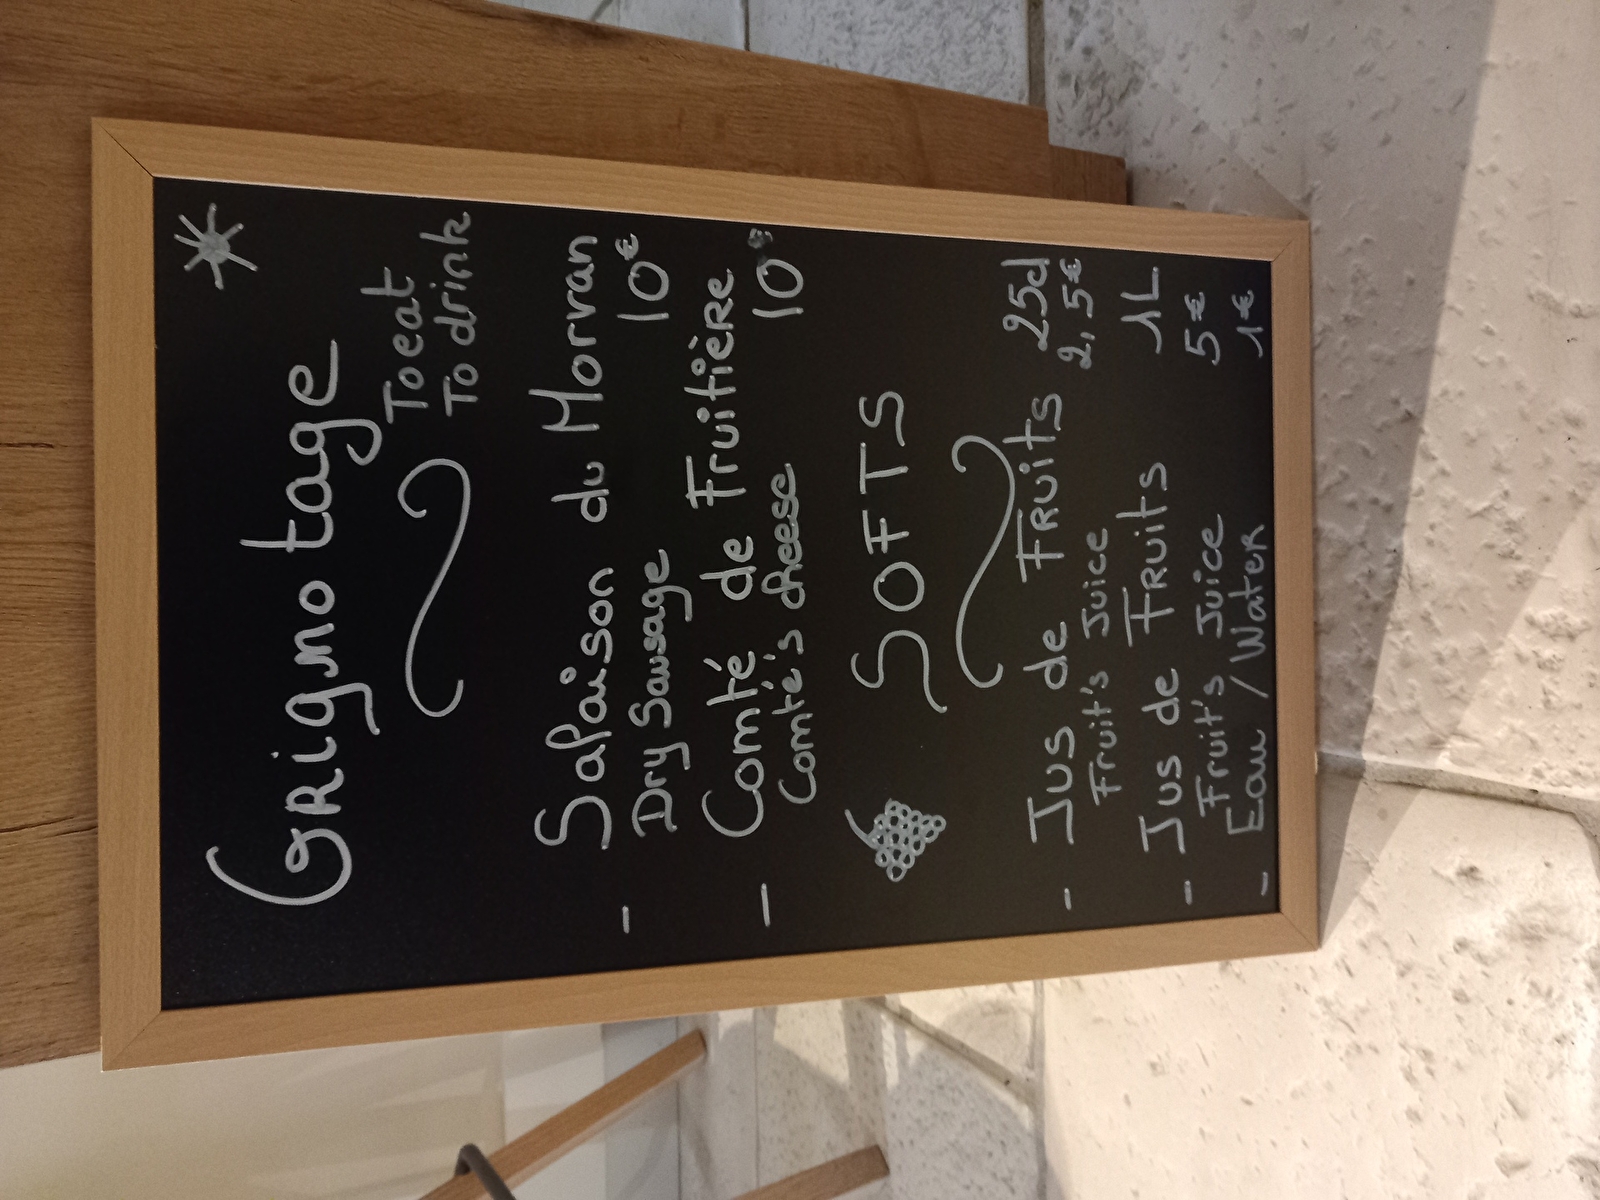 Grignotage
To eat
To drink
- Salaison du Morvan
Dry Sausage 10€
- Comté de Fruitière
Comté's cheese 10€
SOFTS
- Jus de Fruits 25cl
Fruit's Juice 2,5€
- Jus de Fruits 1L
Fruit's Juice 5€
- Eau / Water 1€